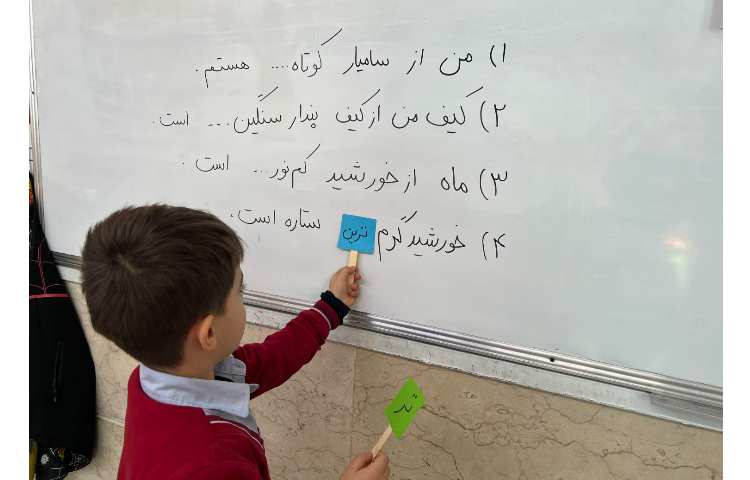 ۱) من از سامیار کوتاه.... هستم.
۲) کیف من از کیف پندار سنگین... است.
۳) ماه از خورشید کم‌نور... است.
۴) خورشید گرم ترین ستاره است.
تر